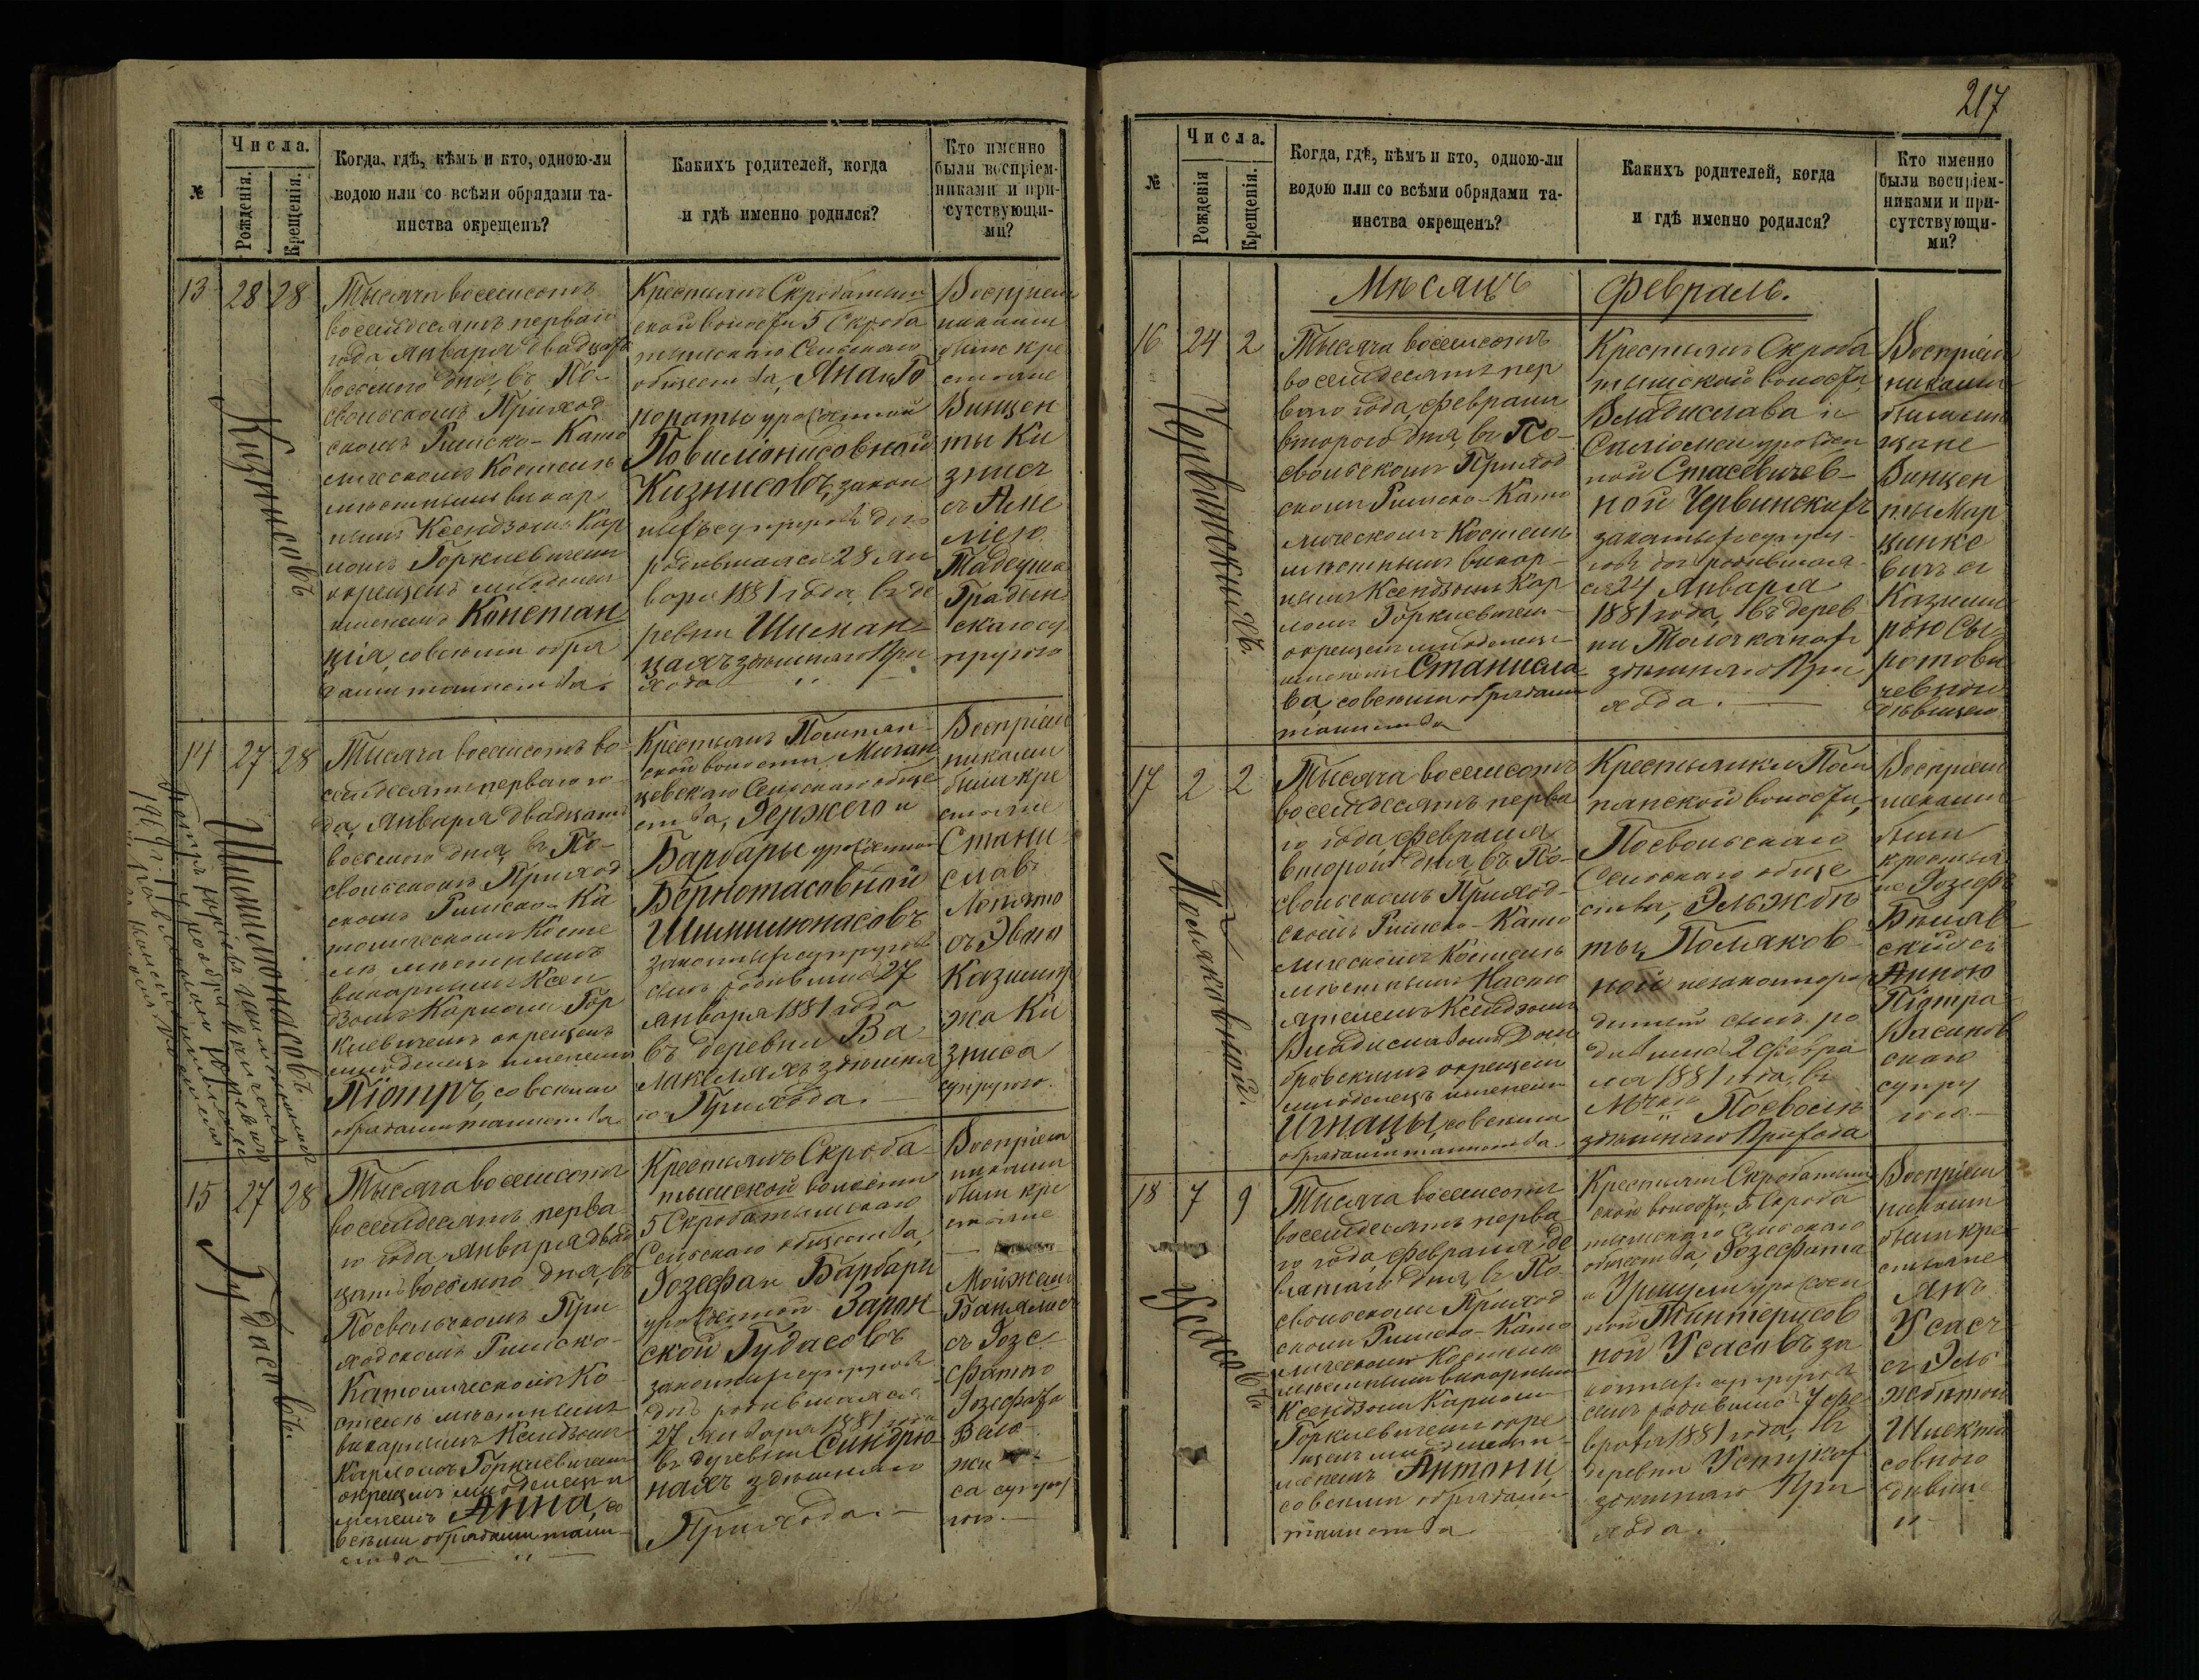 217
№
Числа.
Рожденія.
Крещенія.
Когда, гдѣ, кѣмъ и кто, одною-ли
водою или со всѣми обрядами та-
инства окрещенъ?
Какихъ родителей, когда
и гдѣ именно родился?
Кто именно
были воспріем-
никами и при-
сутствующи-
ми?
13
28
28
Кизнисовъ
Тысяча восемсотъ
восемдесятъ перваго
года Января двадцать
восьмого дня, въ По-
свольскомъ Приход
скомъ Римско-Като
лическомъ Костелѣ
мѣстнымъ викар
нымъ Ксендзомъ Кар
ломъ Горкиевичемъ
окрещенъ младенец
именемъ Констан
ція, со всѣми обря
дами таинства.
Крестьянъ Скробатым
ской волости 5 Скроба
тымскаго Сельскаго
общества, Яна и Го
нораты урожденной
Повиліонисовной
Кизнисовъ, закон
ныхъ супруговъ дочь
родившаяся 28 Ян
варя 1881 года, въ де
ревни Шиман
цахъ здѣшняго При
хода
Воспріем
никами
были кре
стьяне
Винцен
ты Ки
знис
съ
Тадеуша
скаго су
пругою
14
27
28
Шимилюнасовъ
Тысяча восемсотъ во
семдесятъ перваго го
да, Января двадцать
восьмого дня, въ По-
свольскомъ Приход
скомъ Римско-Ка
толическомъ Косте
лѣ мѣстнымъ
викарнымъ Ксен
дзомъ Карломъ Гор
киевичемъ окрещенъ
младенецъ именемъ
Піотръ, со всѣми
обрядами таинства
Крестьянъ
ской волости
цевскаго Сельскаго обще
ства, Ержего и
Барбары урожденной
Бернотасовной
Шимилюнасовъ
законныхъ супруговъ
сынъ родившийся 27
Января 1881 года
въ деревни Ва
здѣшня
го Прихода.
Воспріем
никами
были кре
стьяне
Стани
славъ
съ Эвою
Казимир
жа Ки
зниса
супругою.
15
27
28
Гудасовъ.
Тысяча восемсотъ
восемдесятъ перва
го года, Января двад
цать восьмого дня, въ
Посвольскомъ При
ходскомъ Римско-
Католическомъ Ко
стелѣ мѣстнымъ
викарнымъ Ксендзомъ
Карломъ Горкиевичемъ
окрещенъ младенец и
менемъ Анна, со
всѣми обрядами таин
ства
Крестьянъ Скроба
тымской волости
5 Скробатымскаго
Сельскаго общества,
Іозефа и Барбары
урожденной Зарон
ской Гудасовъ
законныхъ супруговъ
дочь родившаяся
27 Января 1881 года
въ деревни Синдрю
нахъ здѣшняго
Прихода.
Воспріем
никами
были кре
стьяне
съ Іозе
фатою
Іозефата
са супру
гою.
№
Числа.
Рожденія
Крещенія.
Когда, гдѣ, кѣмъ и кто, одною-ли
водою или со всѣми обрядами та-
инства окрещенъ?
Какихъ родителей, когда
и гдѣ именно родился?
Кто именно
были воспріем-
никами и при-
сутствующи-
ми?
Мѣсяцъ
Февраль.
16
24
2
Червинскихъ.
Тысяча восемсотъ
восемдесятъ пер
ваго года, Февраля
второго дня, въ По-
свольскомъ Приход
скомъ Римско-Като
лическомъ Костелѣ
мѣстнымъ викар-
нымъ Ксендзомъ Кар
ломъ Горкиевичем
окрещенъ младенец
именемъ Станисла
ва, со всѣми обрядами
таинства
Крестьянъ Скроба
тымской волости,
Владислава и
Саломеи урожден
ной Стасевичев-
ной Червинскихъ
законныхъ супру-
говъ дочь родившая
ся 24 Января
1881 года, въ дерев
ни
здѣшняго При
хода.
Воспріем
никами
были мѣ
щане
Винцен
ты Мар
цинке
вичъ съ
Казими
рою Сы
ротови
чевною
дѣвицею
17
2
2
Поляковной.
Тысяча восемсотъ
восемдесятъ перва
го года, Февраля
второй дня, въ По-
свольскомъ Приход-
скомъ Римско-Като
лическомъ Костелѣ
мѣстнымъ Насто
ятелемъ Ксендзомъ
Владиславомъ Дом
бровскимъ окрещенъ
младенецъ именемъ
Игнацы, со всѣми
обрядами таинства.
Крестьянки
волости,
Посвольскаго
Сельскаго обще
ства, Эльжбѣ
ты, Поляков
ной незаконноро
денный сынъ ро
дившийся 2 Февра
ля 1881 года, въ
Посволѣ
здѣшняго Прихода
Воспріем
никами
были
крестья
не Іозефъ
скій съ
Анною
Піотра
скаго
супру
гою.
18
7
9
Усасовъ
Тысяча восемсотъ
восемдесятъ перва
го года, Февраля де
вятаго дня, въ По-
свольскомъ Приход
скомъ Римско-Като
лическомъ Костелѣ
мѣстнымъ викарнымъ
Ксендзомъ Карломъ
Горкиевичемъ окре
щенъ младенец и-
менемъ Антони,
со всѣми обрядами
таинства
Крестьянъ Скробатым
ской волости, 5 Скроба
тымскаго Сельскаго
общества, Іозефата
и Уршули урожден
ной Тинтерисов
ной Усасовъ за
конныхъ супруговъ
сынъ родившийся 7 Фе
враля 1881 года, въ
деревни
здѣшняго При
хода.
Воспріем
никами
были кре
стьяне
Янъ
Усасъ
съ Эль
жбѣтою
совною
дѣвице